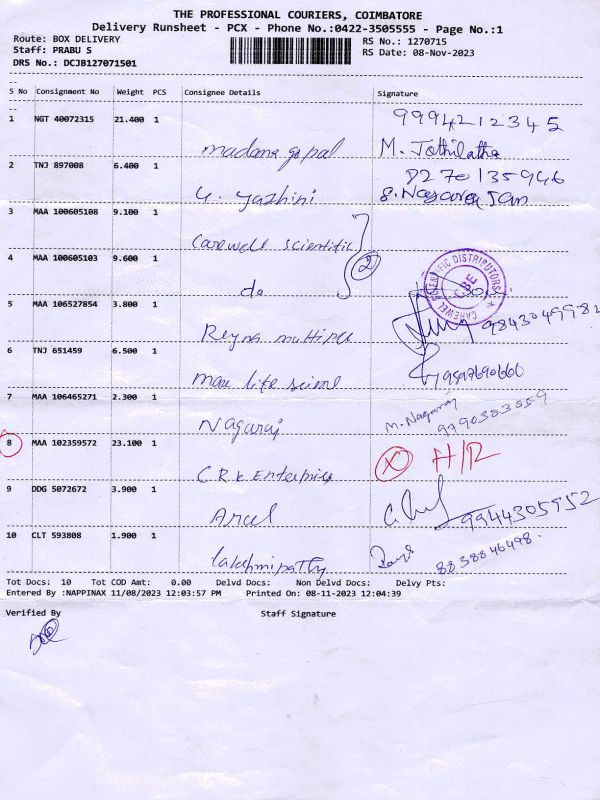 THE PROFESSIONAL COURIERS, COIMBATORE
Delivery Runsheet - PCX - Phone No.:0422-3505555 - Page No.:1
Route: BOX DELIVERY RS No.: 1270715
Staff: PRABU S RS Date: 08-Nov-2023
DRS No.: DCJB127071501
S No Consignment No Weight PCS Consignee Details Signature
1 NGT 40072315 21.400 1 9994212345
madana gopal M. Jothilatha
2 TNJ 897008 6.400 1 8270135946
U. Yazhini S. Nagarajan
3 MAA 100605108 9.100 1
Carewell Scientific
4 MAA 100605103 9.600 1 2
do
CAREWEL SCIENTIFIC DISTRIBUTORS CBE
5 MAA 106527854 3.800 1
Reyna 9843049982
6 TNJ 651459 6.500 1
max life 9597690660
7 MAA 106465271 2.300 1
Nagaraj M. Nagaraj 9790383859
8 MAA 102359572 23.100 1
C.R.K Enterprises X H/R
9 DDG 5072672 3.900 1
Arul 9944305752
10 CLT 593808 1.900 1
Lakshmipathy 8838846498
Tot Docs: 10 Tot COD Amt: 0.00 Delvd Docs: Non Delvd Docs: Delvy Pts:
Entered By :NAPPINAX 11/08/2023 12:03:57 PM Printed On: 08-11-2023 12:04:39
Verified By Staff Signature